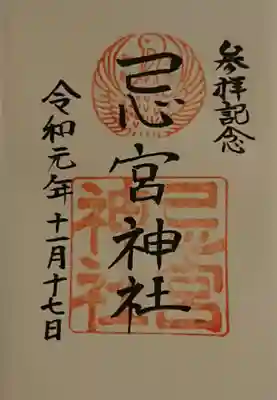 参拝記念
忌宮神社
令和元年十一月十七日
忌宮
神社